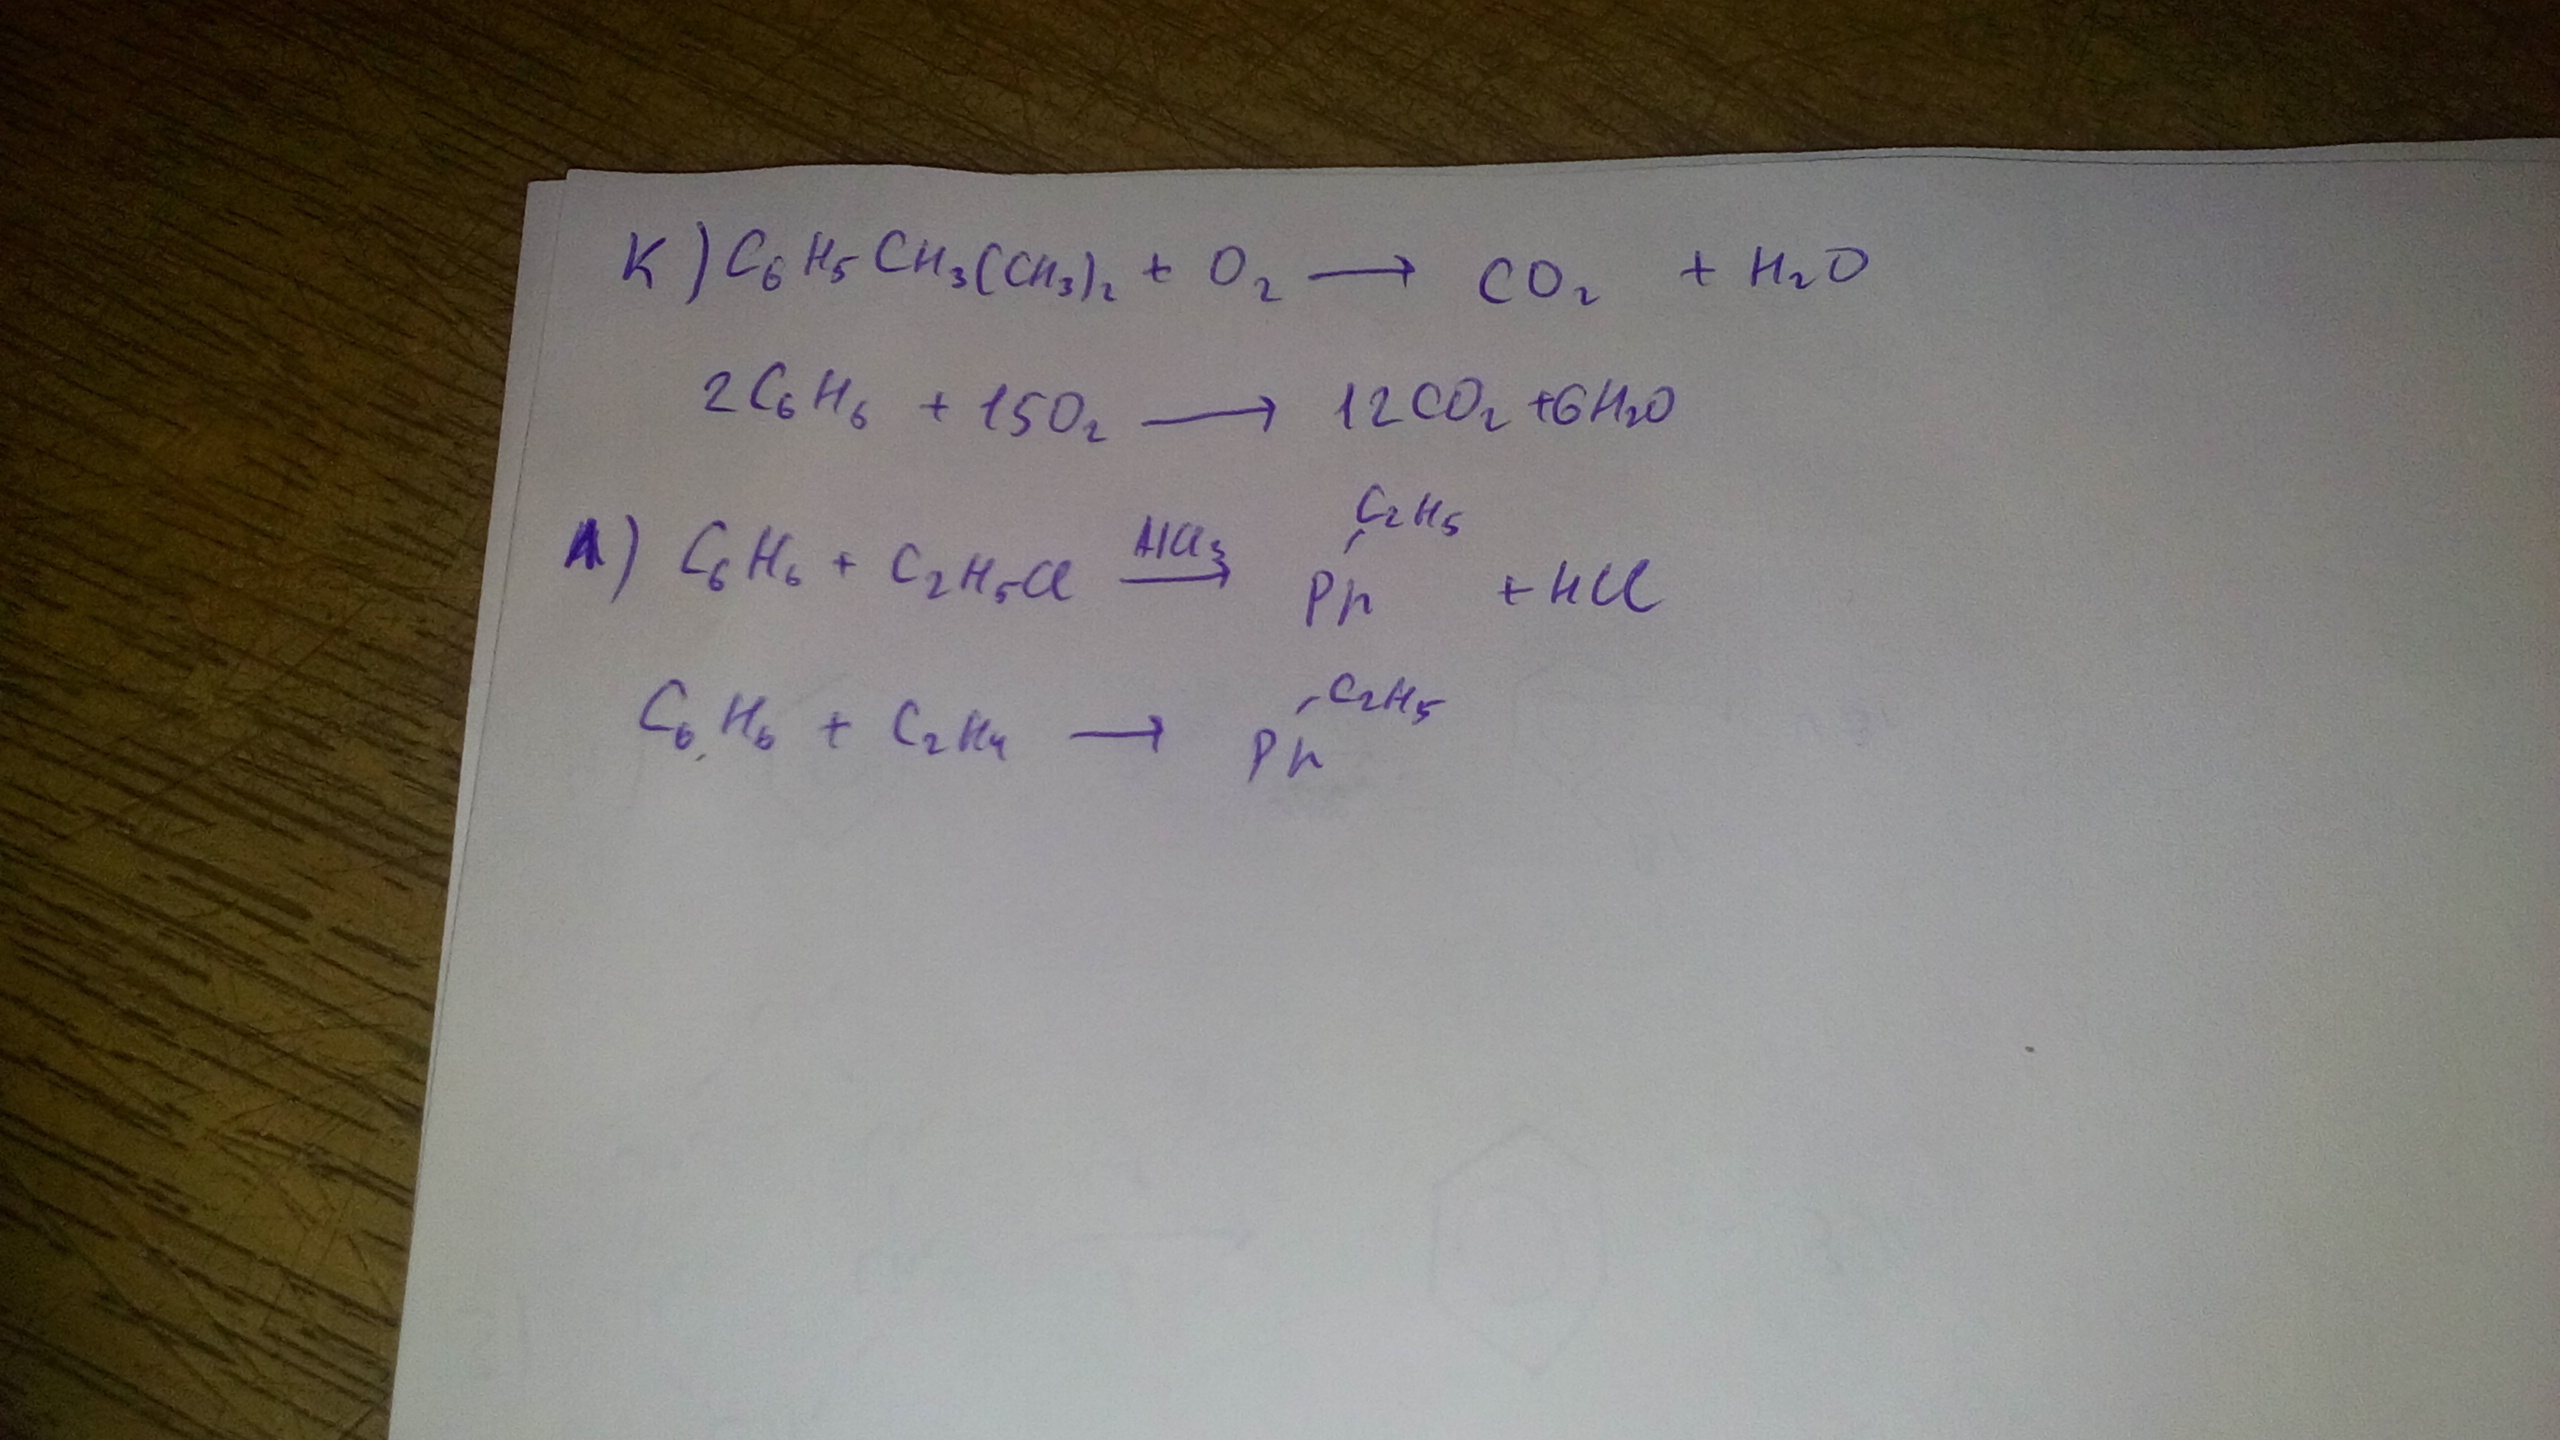 K) C₆H₅CH₃(CH₃)₂ + O₂ → CO₂ + H₂O
2C₆H₆ + 15O₂ → 12CO₂ + 6H₂O
Л) C₆H₆ + C₂H₅Cl AlCl₃ → Ph-C₂H₅ + HCl
C₆H₆ + C₂H₄ → Ph-C₂H₅